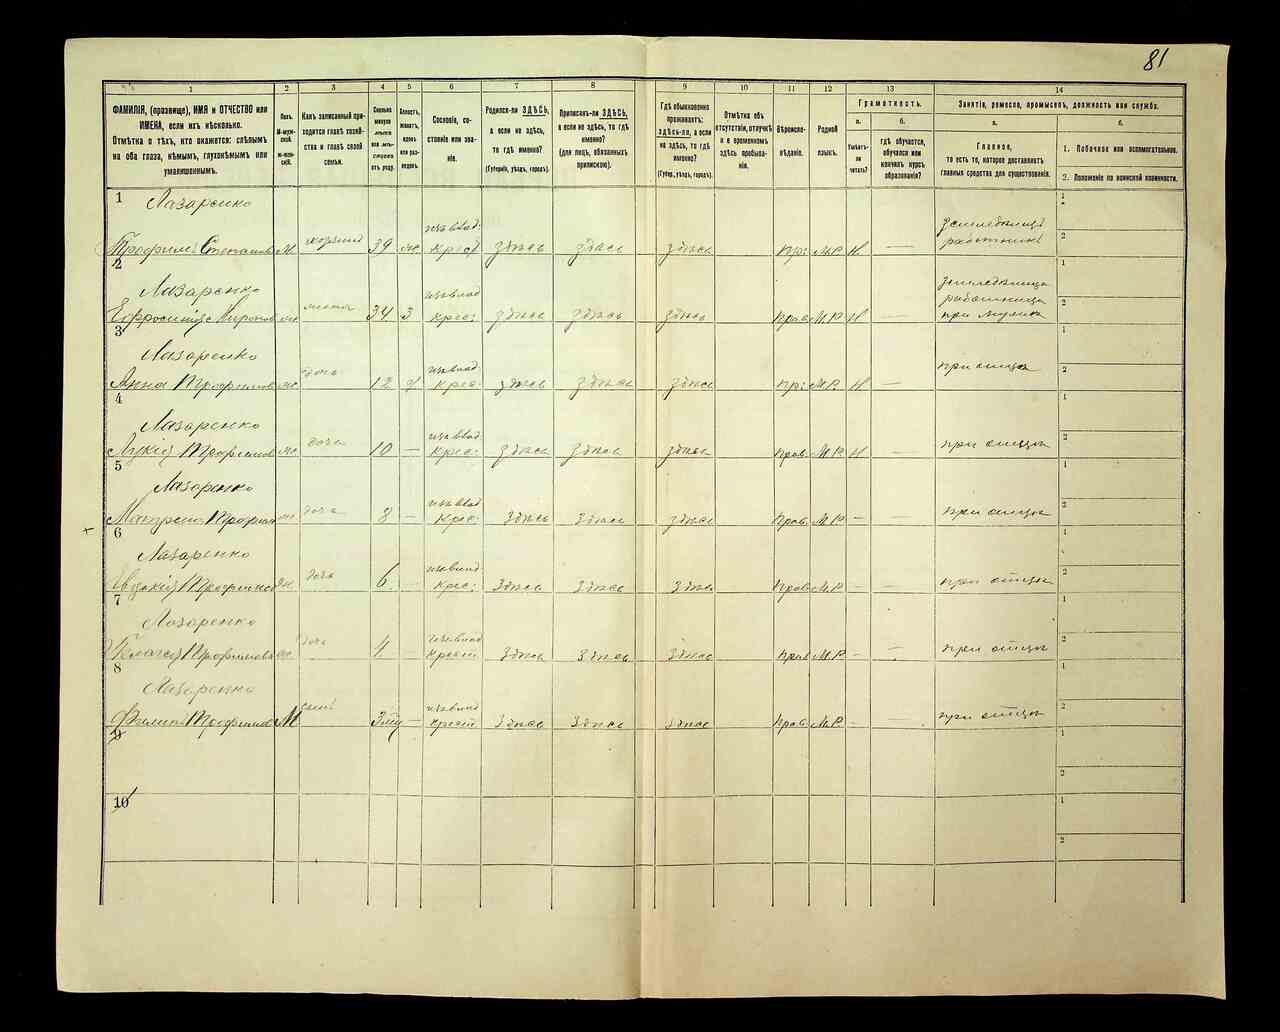 81
1 2 3 4 5 6 7 8 9 10 11 12 13 14
ФАМИЛІЯ, (прозвище), ИМЯ и ОТЧЕСТВО или ИМЕНА, если ихъ нѣсколько.
Отмѣтка о тѣхъ, кто окажется: слѣпымъ на оба глаза, нѣмымъ, глухонѣмымъ или умалишеннымъ.
Полъ.
М-мужской.
Ж-женскій.
Какъ записанный приходится главѣ хозяйства и главѣ своей семьи.
Сколько минуло лѣтъ или мѣсяцевъ отъ роду.
Холостъ, женатъ, вдовъ или разведенъ.
Сословіе, состояніе или званіе.
Родился-ли ЗДѢСЬ, а если не здѣсь, то гдѣ именно?
(Губернія, уѣздъ, городъ).
Приписанъ-ли ЗДѢСЬ, а если не здѣсь, то гдѣ именно?
(для лицъ, обязанныхъ припискою).
Гдѣ обыкновенно проживаетъ: здѣсь-ли, а если не здѣсь, то гдѣ именно?
(Губер., уѣздъ, городъ).
Отмѣтка объ отсутствіи, отлучкѣ и о временномъ здѣсь пребываніи.
Вѣроисповѣданіе.
Родной языкъ.
Грамотность.
а.
Умѣетъ-ли читать?
б.
гдѣ обучается, обучался или кончилъ курсъ образованія?
Занятіе, ремесло, промыселъ, должность или служба.
а.
Главное,
то есть то, которое доставляетъ главныя средства для существованія.
б.
1. Побочное или вспомогательное.
2. Положеніе по воинской повинности.
1 Лазаренко
Трофимъ м хозяинъ 39 ж. изъ влад. Крест здѣсь здѣсь здѣсь Пр: М.Р. Н — работникъ 1 2
2 Лазаренко
34 З Крес: здѣсь здѣсь здѣсь Прав М.Р. Н — работница при 1 2
3 Лазаренко
Анна дочь 12 Крес: здѣсь здѣсь здѣсь Пр: М.Р. Н — при отцѣ 1 2
4 Лазаренко
дочь 10 — Крес: здѣсь здѣсь здѣсь Прав. М.Р. Н — при отцѣ 1 2
5 Лазаренко
дочь 8 — Крес: здѣсь здѣсь здѣсь Прав. М.Р. — при отцѣ 1 2
6 Лазаренко
дочь 6 — Крес: здѣсь здѣсь здѣсь Прав. М.Р. — — при отцѣ 1 2
7 Лазаренко
дочь 4 — Крест здѣсь здѣсь здѣсь Прав М.Р. — — при отцѣ 1 2
8 Лазаренко
М сынъ — Крест здѣсь здѣсь здѣсь Прав. М.Р. — — при отцѣ 1 2
9 1 2
10 1 2